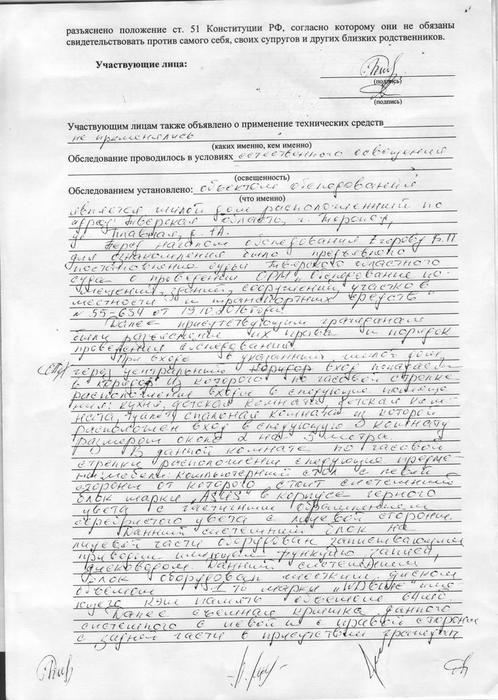 разъяснено положение ст. 51 Конституции РФ, согласно которому они не обязаны
свидетельствовать против самого себя, своих супругов и других близких родственников.
Участвующие лица:
(подпись)
(подпись)
Участвующим лицам также объявлено о применение технических средств
не применялись
(каких именно, кем именно)
Обследование проводилось в условиях естественного освещения
(освещенность)
Обследованием установлено: объектом обследования
(что именно)
является жилой дом расположенный по
адресу: Тверская область, г. Торопец,
ул. Главная, д. 1А.
Перед началом обследования Егорову
для ознакомления было предъявлено
постановление судьи Тверского областного
суда о проведении ОРМ "Обследование по-
мещений, зданий, сооружений, участков
местности и транспортных средств"
№ 55-654 от 19.10.2016 года
Далее присутствующим гражданам
были разъяснены их права и порядок
проведения обследования
При входе в указанный жилой дом,
через центральный вход
в коридор из которого по часовой стрелке
расположены входы в следующие помеще-
ния: кухня, комната, детская ком-
ната, спальная комната из которой
расположен вход в следующую комнату
размером около 2 на 3 метра
В данной комнате по часовой
стрелке расположены следующие предме-
ты мебели: компьютерный стол с левой
стороны от которого стоит системный
блок марки "ASUS" в корпусе черного
цвета с частичным обрамлением
серебристого цвета с лицевой стороны.
Данный системный блок на
лицевой части оборудован записывающим
прибором имеющим функцию записи,
дисководом. Данный системный
блок оборудован жестким диском
объемом 1 Тб марки
кэш память объемом
Далее съемная крышка данного
системного с левой и с правой стороны
с задней части в присутствии граждан